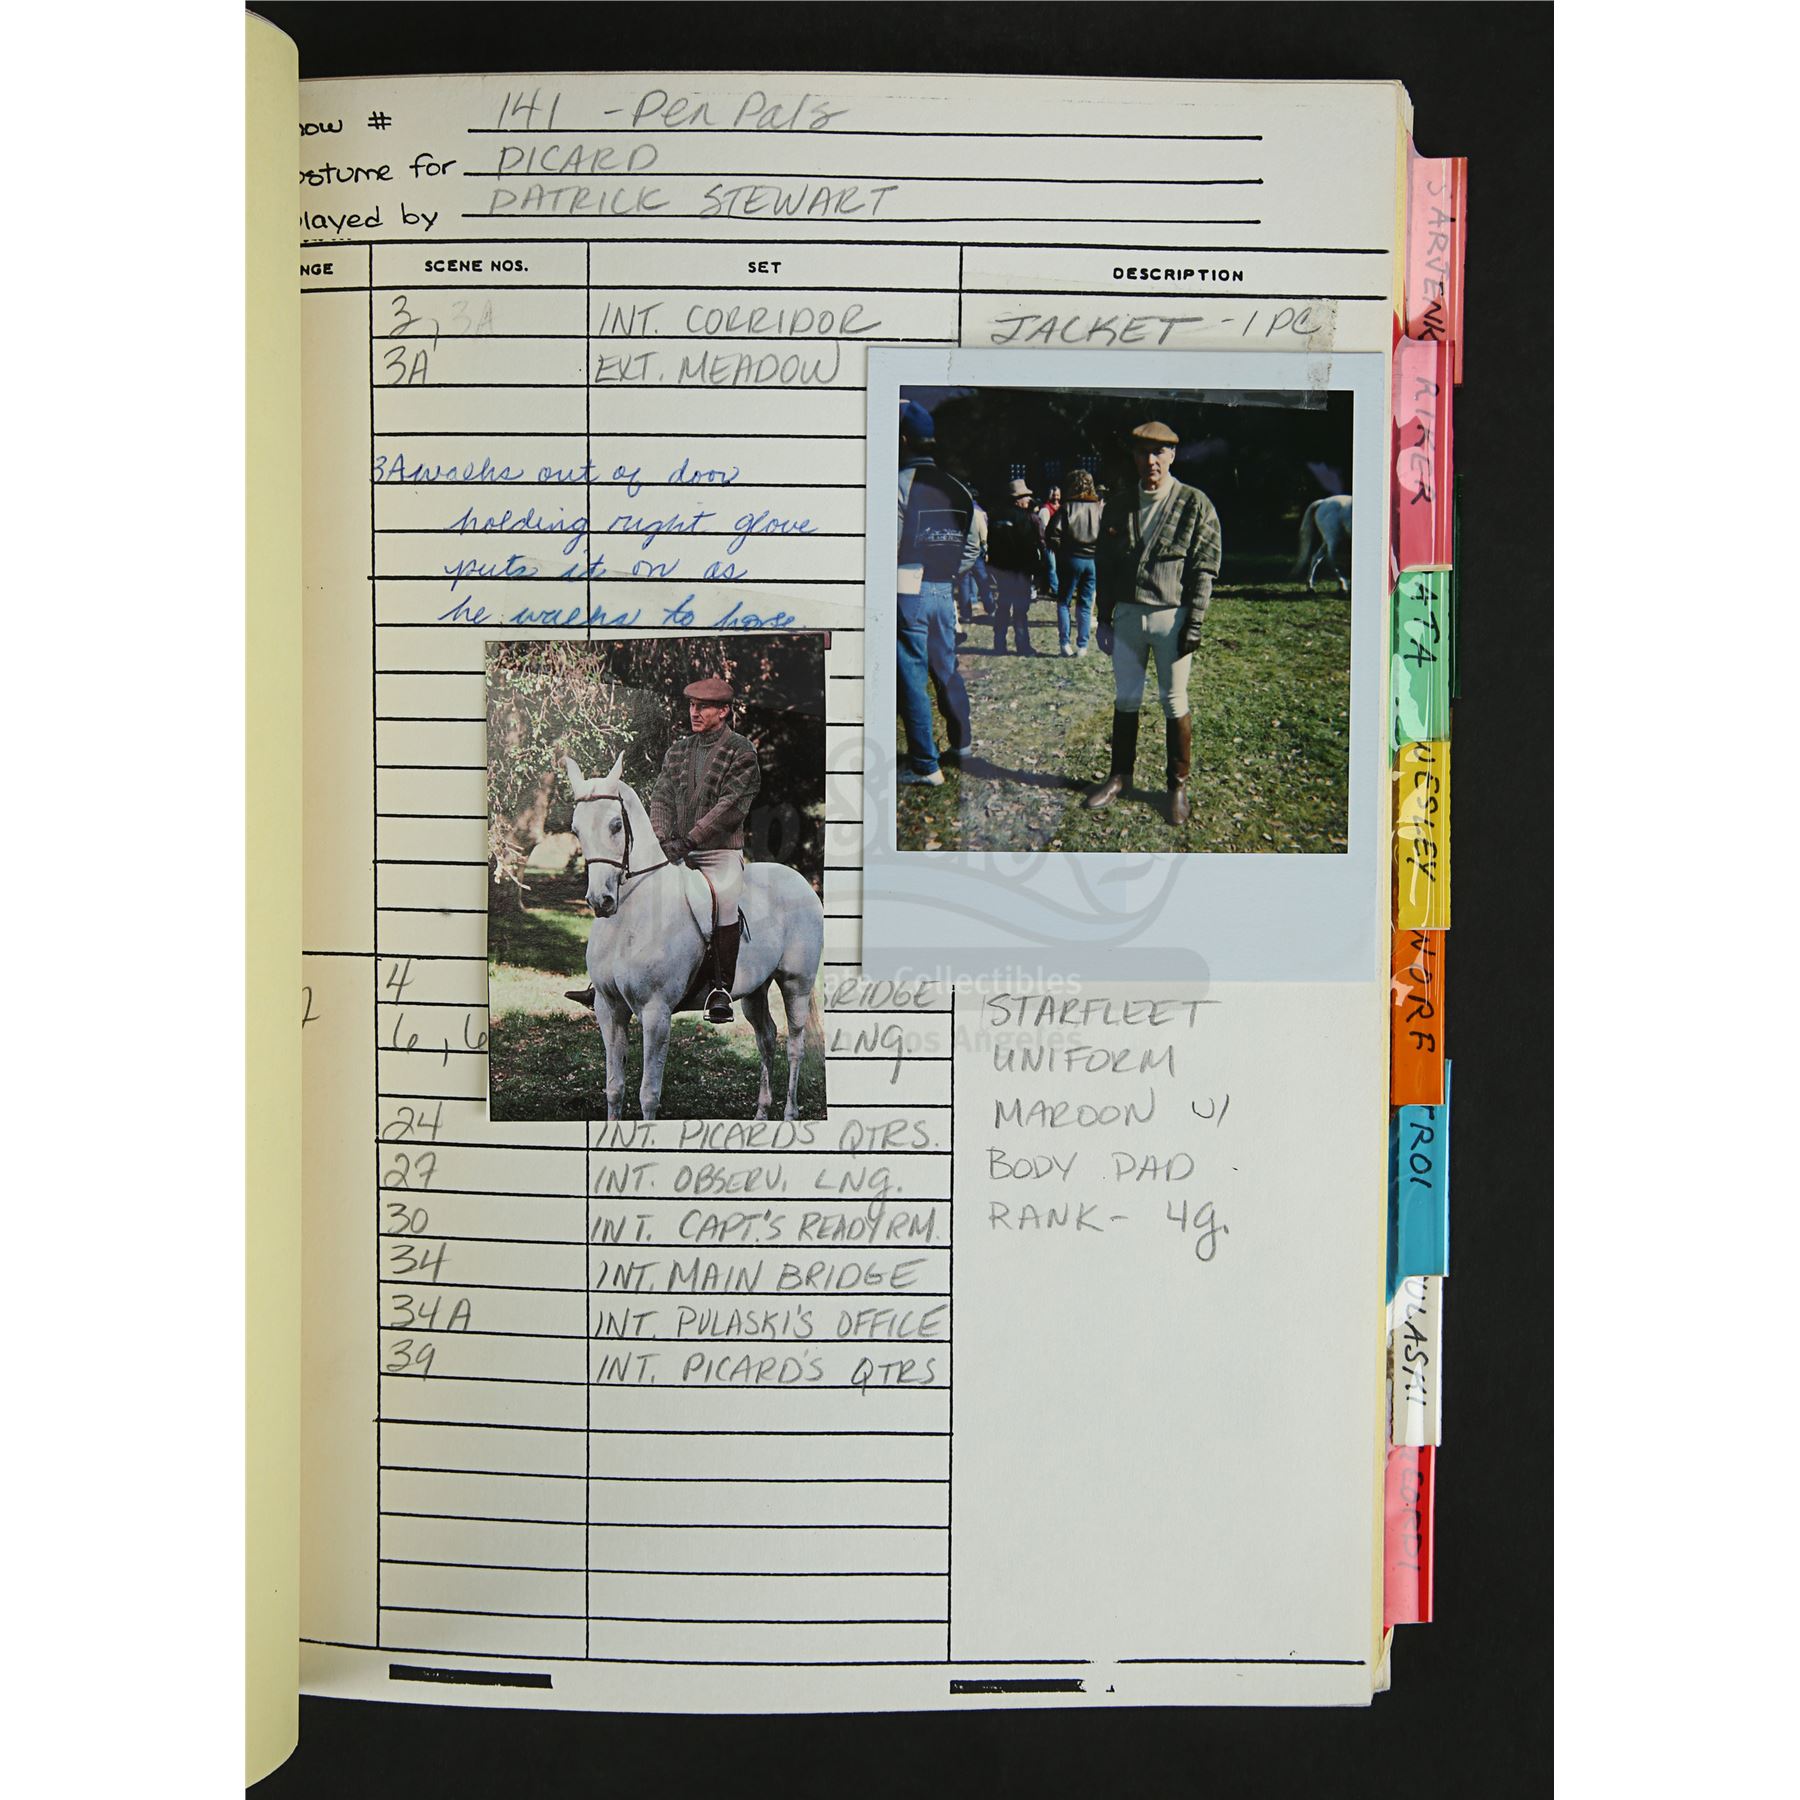 ow # 141 - Pen Pals
ostume for PICARD
layed by PATRICK STEWART
NGE SCENE NOS. SET DESCRIPTION
3, 3A INT. CORRIDOR JACKET - 1 PC
3A EXT. MEADOW
3A walks out of door
holding right glove
puts it on as
he walks to horse.
4 BRIDGE STARFLEET
6, 6 LNG. UNIFORM
MAROON W/
24 INT. PICARD'S QTRS.
27 INT. OBSERV. LNG. BODY PAD
30 INT. CAPT.'S READY RM. RANK - 4g.
34 INT. MAIN BRIDGE
34A INT. PULASKI'S OFFICE
39 INT. PICARD'S QTRS
SARJENKA
RIKER
ATA
WESLEY
WORF
TROI
ULASKI
GEORDI
Prop Store
Ultimate Collectibles
London Los Angeles